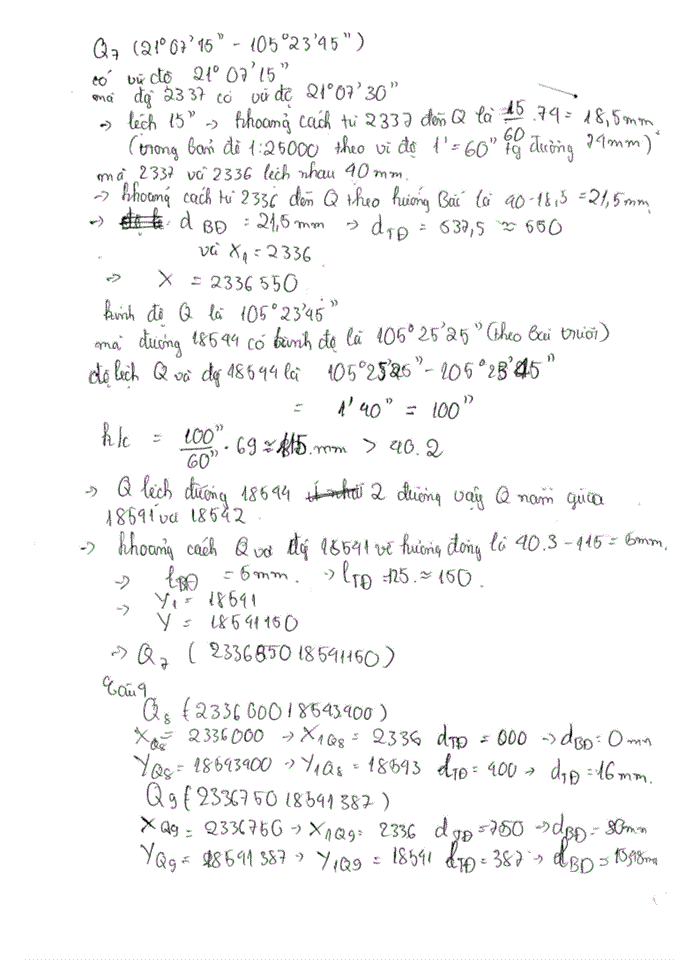 Q7 (21°07'15" - 105°23'45")
có vĩ độ 21°07'15"
mà đg 2337 có vĩ độ 21°07'30"
→ lệch 15" → khoảng cách từ 2337 đến Q là 15/60 . 74 = 18,5mm
(trong bản đồ 1:25000 theo vĩ độ 1' = 60" tg đường 74mm)
mà 2337 và 2336 lệch nhau 40 mm.
→ khoảng cách từ 2336 đến Q theo hướng Bắc là 40-18,5 = 21,5mm
→ d BĐ = 21,5mm → dTĐ = 537,5 ≈ 550
và X1 = 2336
→ X = 2336550
kinh độ Q là 105°23'45"
mà đường 18544 có kinh độ là 105°25'25" (theo bài trước)
độ lệch Q và đg 18544 là 105°25'25" - 105°23'45"
= 1'40" = 100"
k/c = 100"/60" . 69 ≈ 115 mm > 40.2
→ Q lệch đường 18544 2 đường vậy Q nằm giữa
18541 và 18542
→ khoảng cách Q và đg 18541 về hướng đông là 40.3 - 115 = 5mm.
→ lBĐ = 5mm. → lTĐ = 125. ≈ 150.
→ Y1 = 18541
→ Y = 18541150
→ Q7 (2336550 18541150)
Câu 9
Q8 (2336000 18543400)
XQ8 = 2336000 → X1Q8 = 2336 dTĐ = 000 → dBĐ = 0mm
YQ8 = 18543400 → Y1Q8 = 18543 dTĐ = 400 → dTĐ = 16mm.
Q9 (2336750 18541387)
XQ9 = 2336750 → X1Q9 = 2336 dTĐ = 750 → dBĐ = 30mm
YQ9 = 18541387 → Y1Q9 = 18541 dTĐ = 387 → dBĐ = 15,48mm